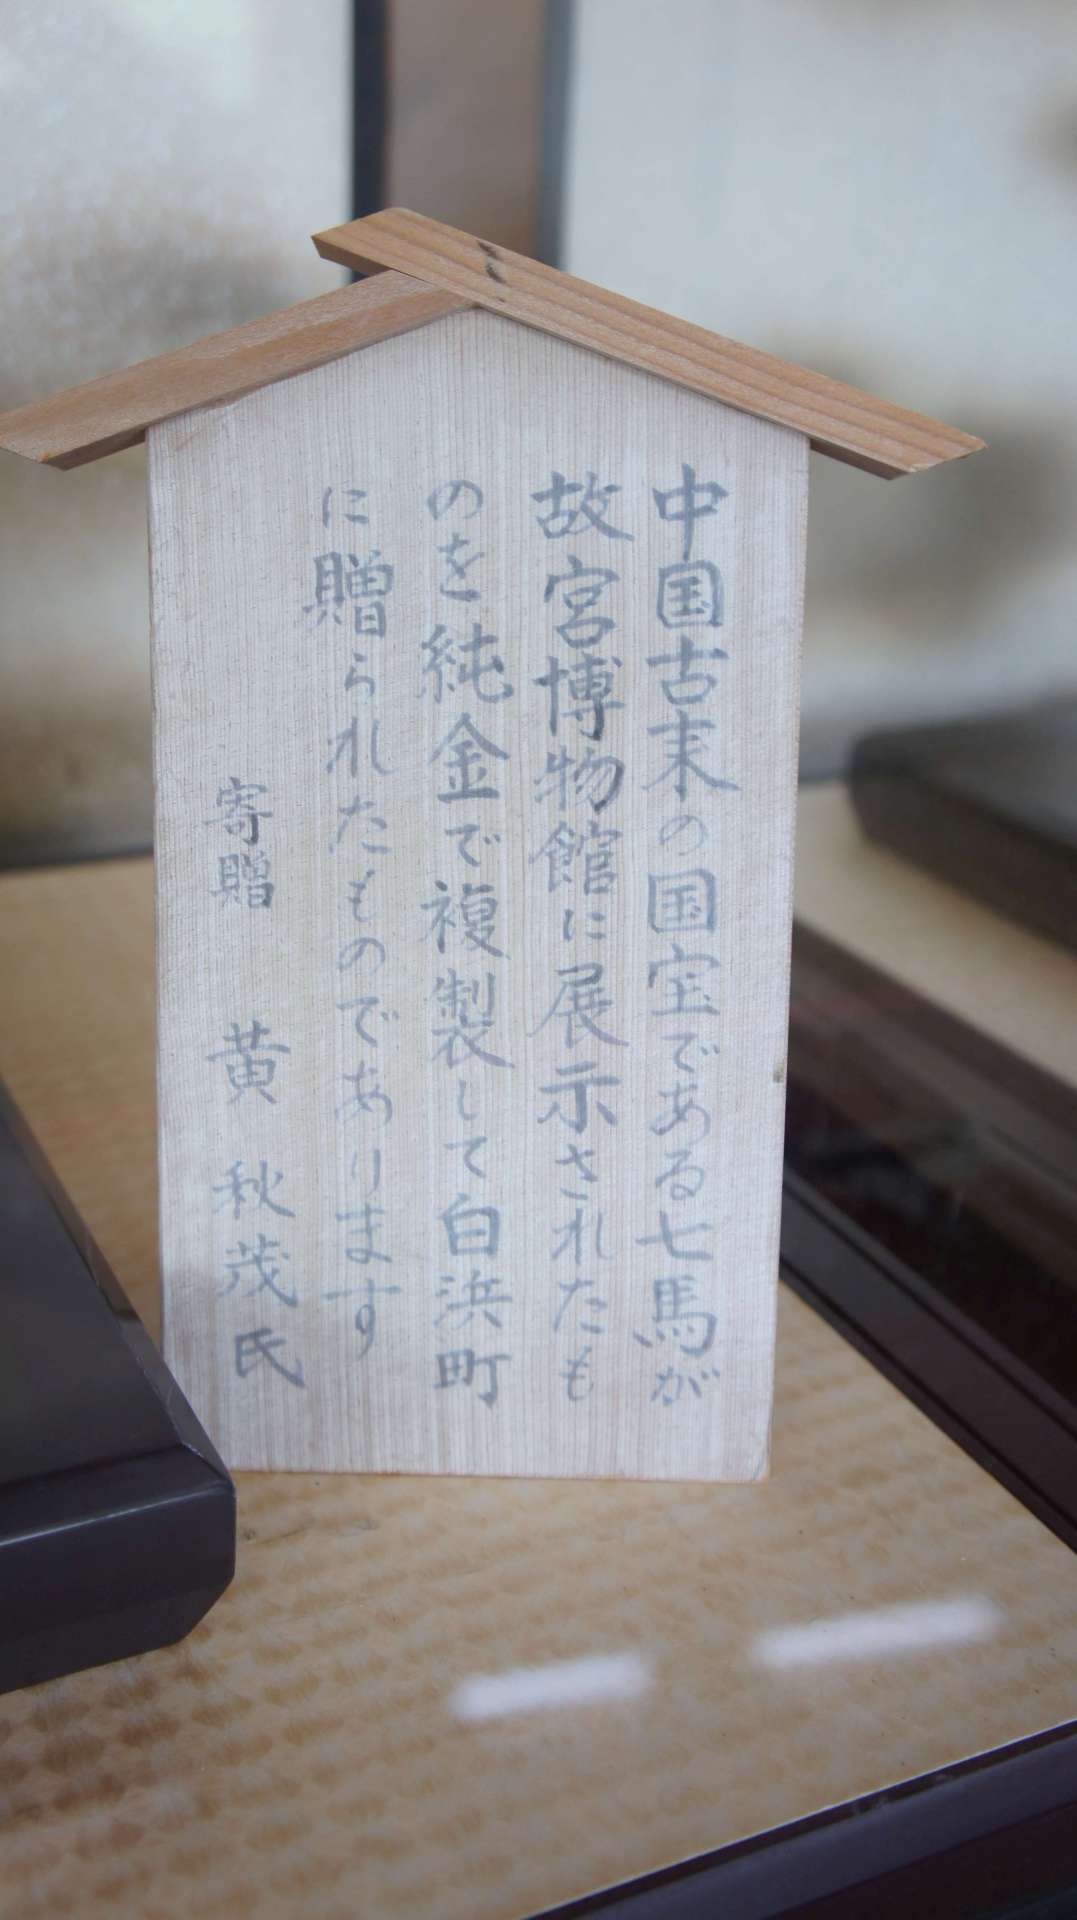 中国古来の国宝である七馬が
故宮博物館に展示されたも
のを純金で複製して白浜町
に贈られたものであります
寄贈 黄 秋茂氏